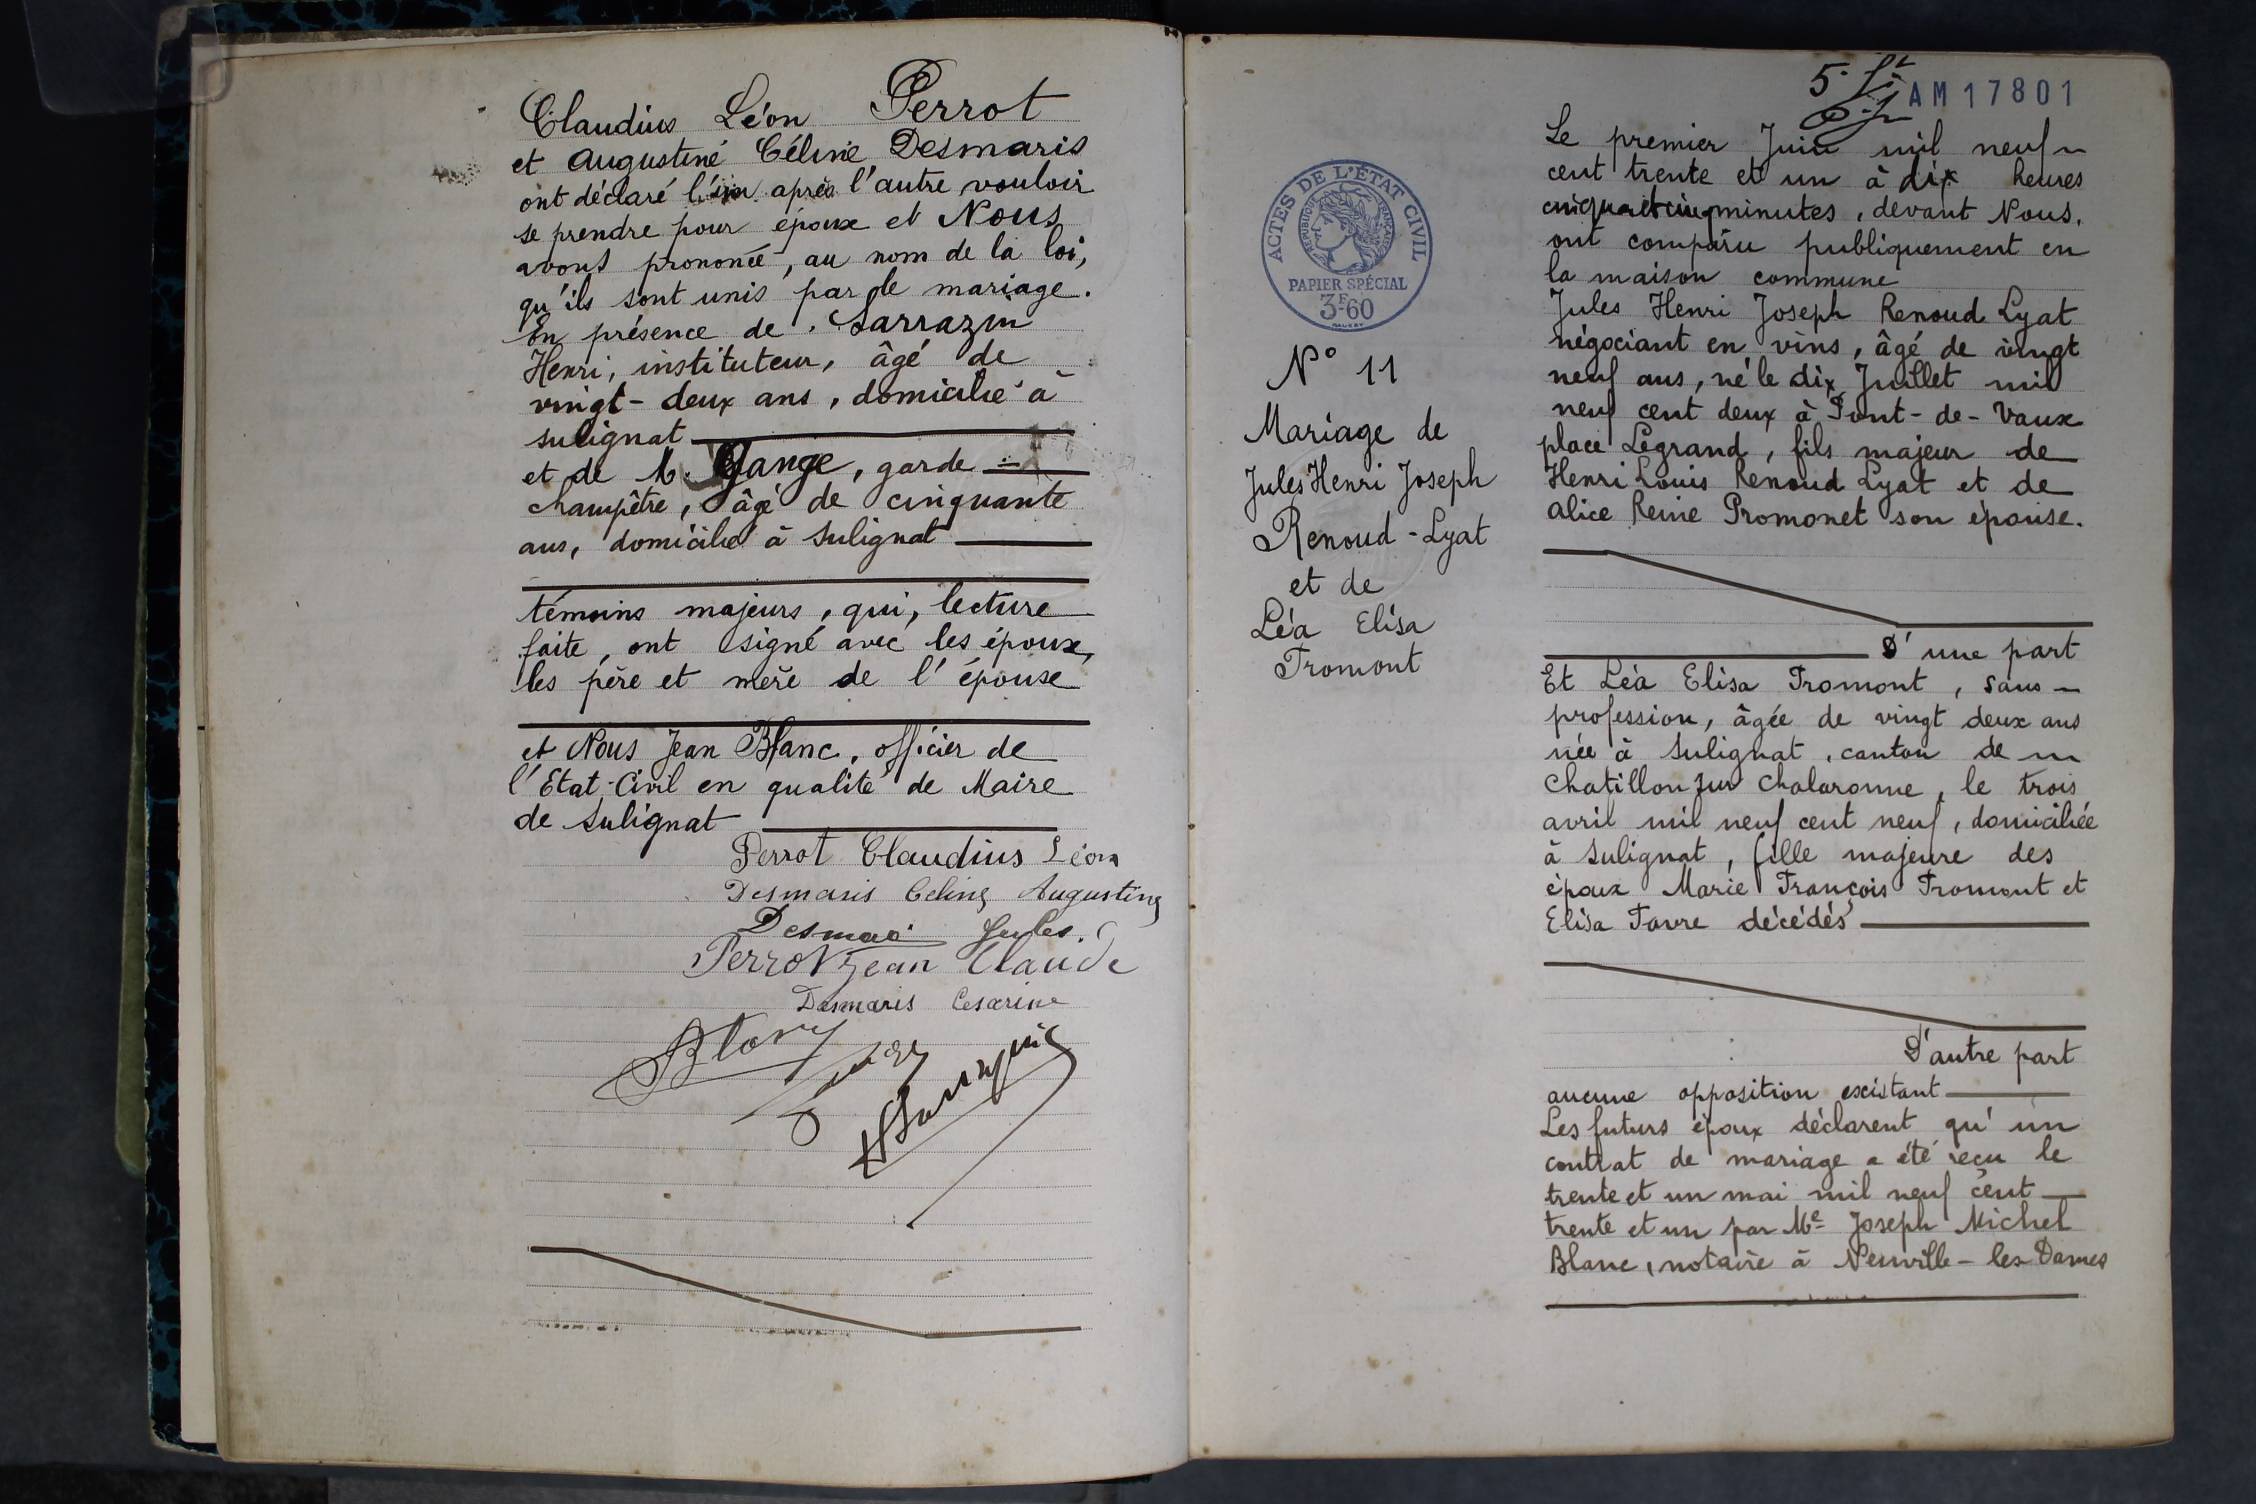 Claudius Léon Perrot
et Augustine Céline Desmaris
ont déclaré l'un après l'autre vouloir
se prendre pour époux et Nous
avons prononcé, au nom de la loi,
qu'ils sont unis par le mariage.
En présence de Sarrazin
Henri, instituteur, âgé de
vingt-deux ans, domicilié à
Sulignat
et de M. Gange, garde
champêtre, âgé de cinquante
ans, domicilié à Sulignat
témoins majeurs, qui, lecture
faite, ont signé avec les époux,
les père et mère de l'épouse
et Nous Jean Blanc, officier de
l'Etat-Civil en qualité de Maire
de Sulignat
Perrot Claudius Léon
Desmaris Celine Augustine
Desmaris Jules.
Perrot Jean Claude
Desmaris Cesarine
HSarrazin
5
AM17801
ACTES DE L'ÉTAT CIVIL
RÉPUBLIQUE FRANÇAISE
PAPIER SPÉCIAL
3F.60
N° 11
Mariage de
Jules Henri Joseph
Renoud-Lyat
et de
Léa Elisa
Fromont
Le premier Juin mil neuf
cent trente et un à dix heures
cinquante cinq minutes, devant Nous,
ont comparu publiquement en
la maison commune
Jules Henri Joseph Renoud Lyat
négociant en vins, âgé de vingt
neuf ans, né le dix Juillet mil
neuf cent deux à Pont-de-Vaux
place Legrand, fils majeur de
Henri Louis Renoud Lyat et de
Alice Reine Promonet son épouse.
D'une part
Et Léa Elisa Fromont, sans
profession, âgée de vingt deux ans
née à Sulignat, canton de
Chatillon sur Chalaronne, le trois
avril mil neuf cent neuf, domiciliée
à Sulignat, fille majeure des
époux Marie François Fromont et
Elisa Favre décédés
D'autre part
aucune opposition existant
Les futurs époux déclarent qu'un
contrat de mariage a été reçu le
trente et un mai mil neuf cent
trente et un par Me Joseph Michel
Blanc, notaire à Neuville-les-Dames